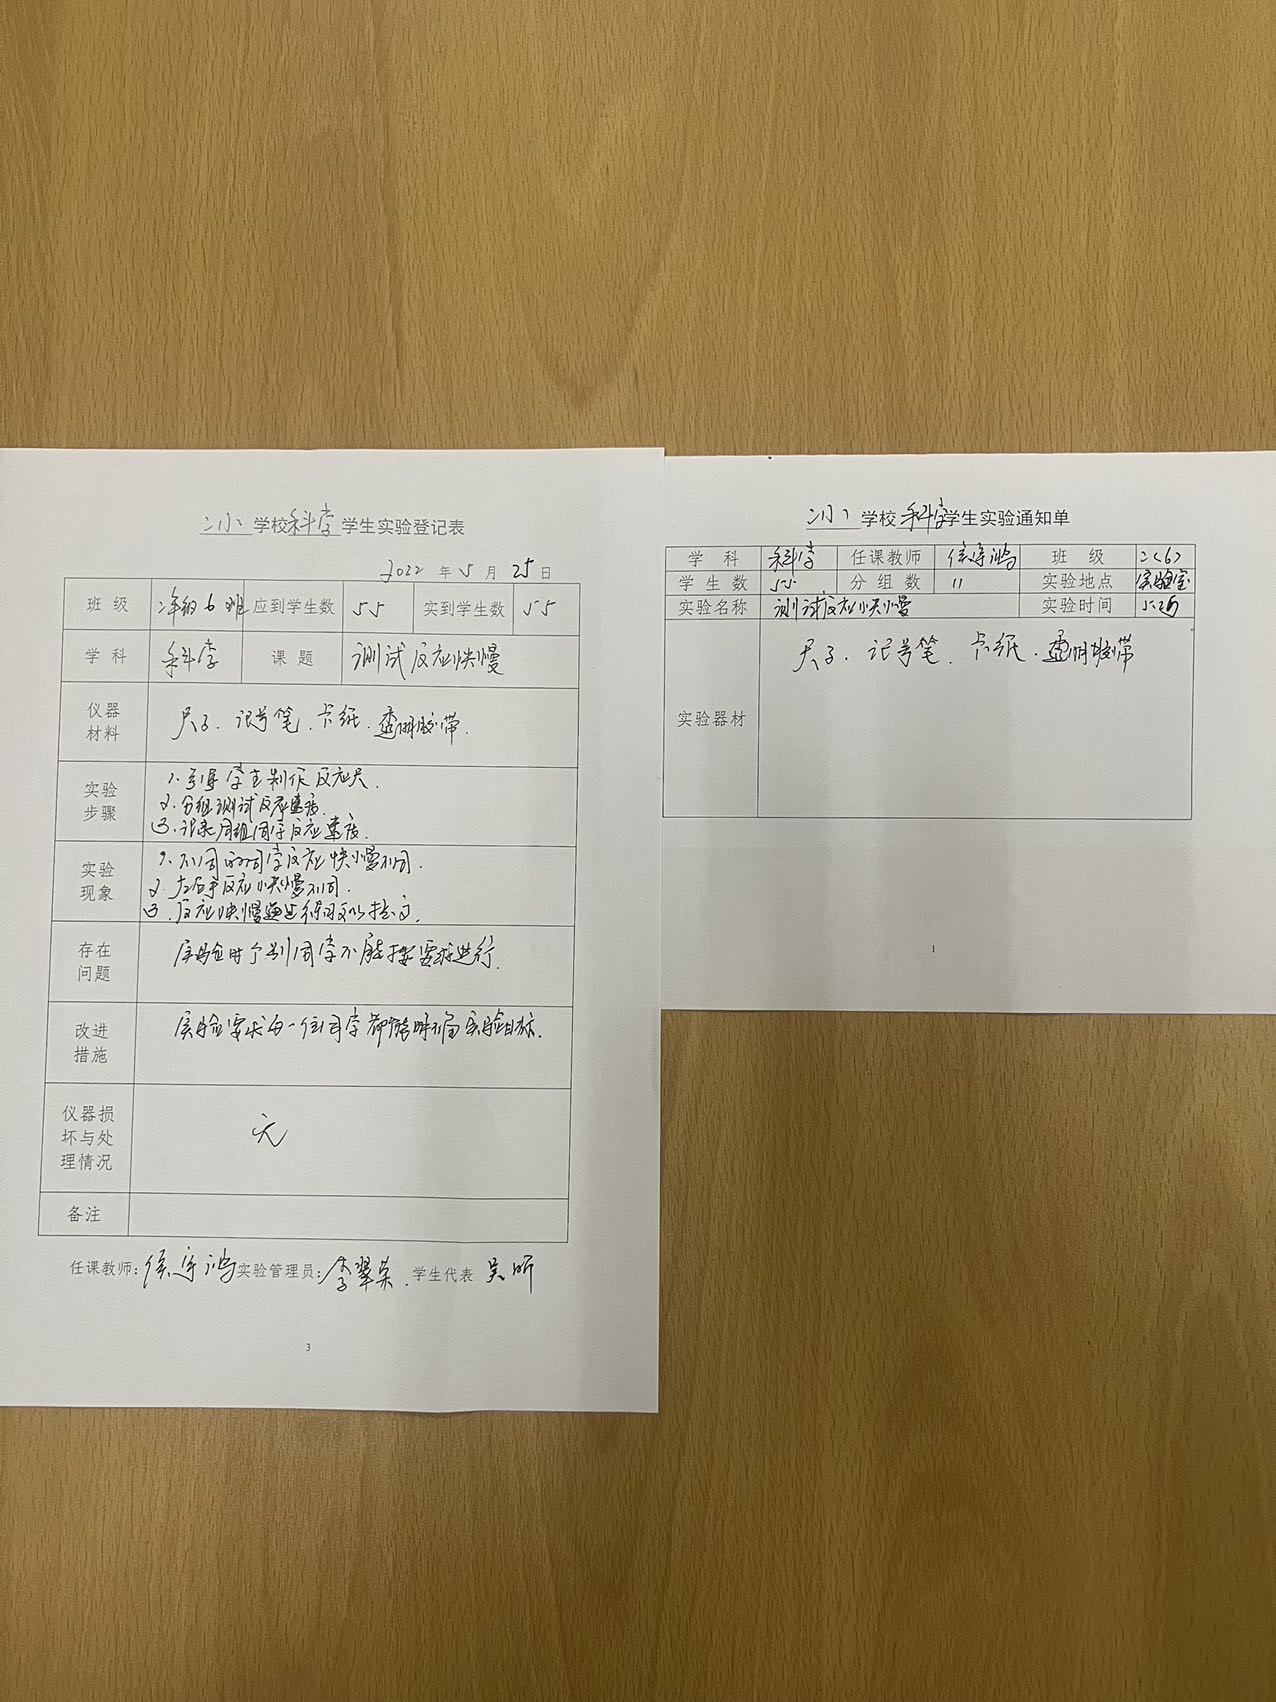 二小学校科学学生实验登记表
2022年5月25日
班级 二年级6班 应到学生数 55 实到学生数 55
学科 科学 课题 测试反应快慢
仪器材料 尺子、记号笔、卡纸、透明胶带.
实验步骤 1.引导学生制作反应尺.
2.分组测试反应速度.
3.记录同组同学反应速度.
实验现象 1.不同的同学反应快慢不同.
2.左右手反应快慢不同.
3.反应快慢通过练习可以提高.
存在问题 实验时个别同学不能按要求进行.
改进措施 实验要求每一位同学都能明确实验目标.
仪器损坏与处理情况 无
备注
任课教师: 实验管理员:李翠英. 学生代表 吴昕
3
二小学校科学学生实验通知单
学科 科学 任课教师 班级 二(6)
学生数 55 分组数 11 实验地点 实验室
实验名称 测试反应快慢 实验时间 5.25
实验器材 尺子、记号笔、卡纸、透明胶带
1